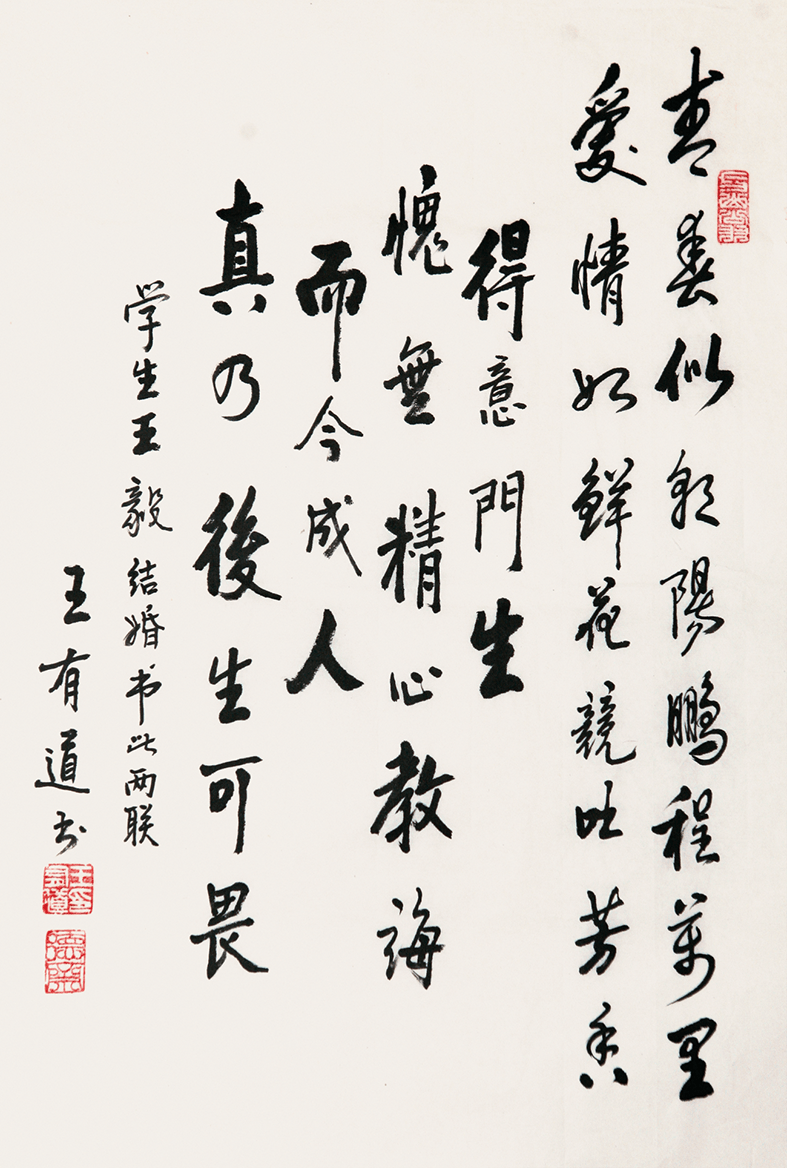 青春似朝陽鵬程萬里
愛情如鮮花競吐芳香
得意門生
愧無精心教誨
而今成人
真乃後生可畏
学生王毅结婚书此两联
王有道书